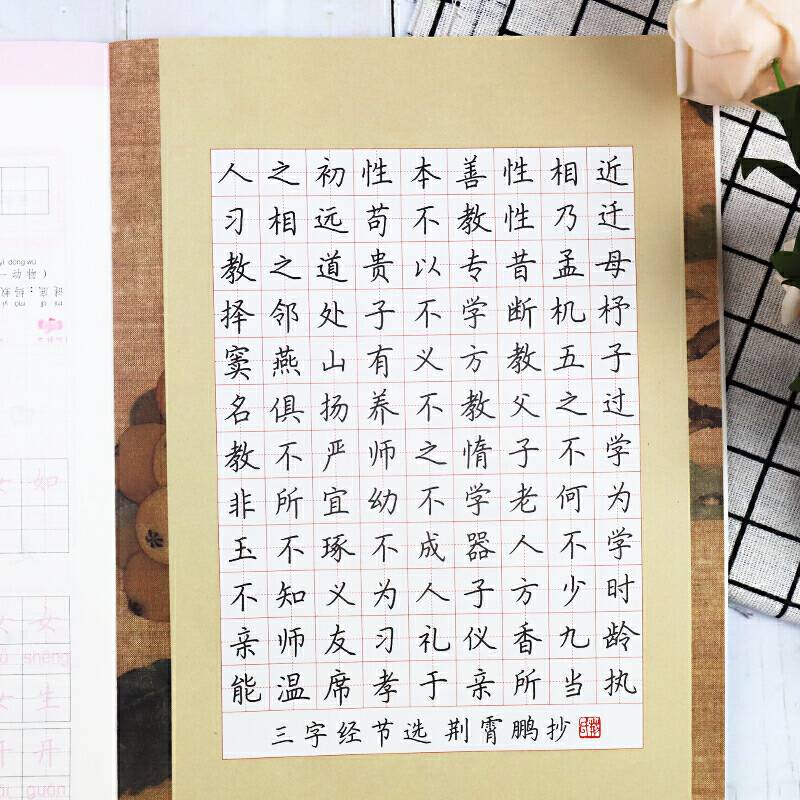 人之初性本善性相近
习相远苟不教性乃迁
教之道贵以专昔孟母
择邻处子不学断机杼
窦燕山有义方教五子
名俱扬养不教父之过
教不严师之惰子不学
非所宜幼不学老何为
玉不琢不成器人不学
不知义为人子方少时
亲师友习礼仪香九龄
能温席孝于亲所当执
三字经节选 荆霄鹏抄
dòng wù
女 如
女
shēng
女 生
丹